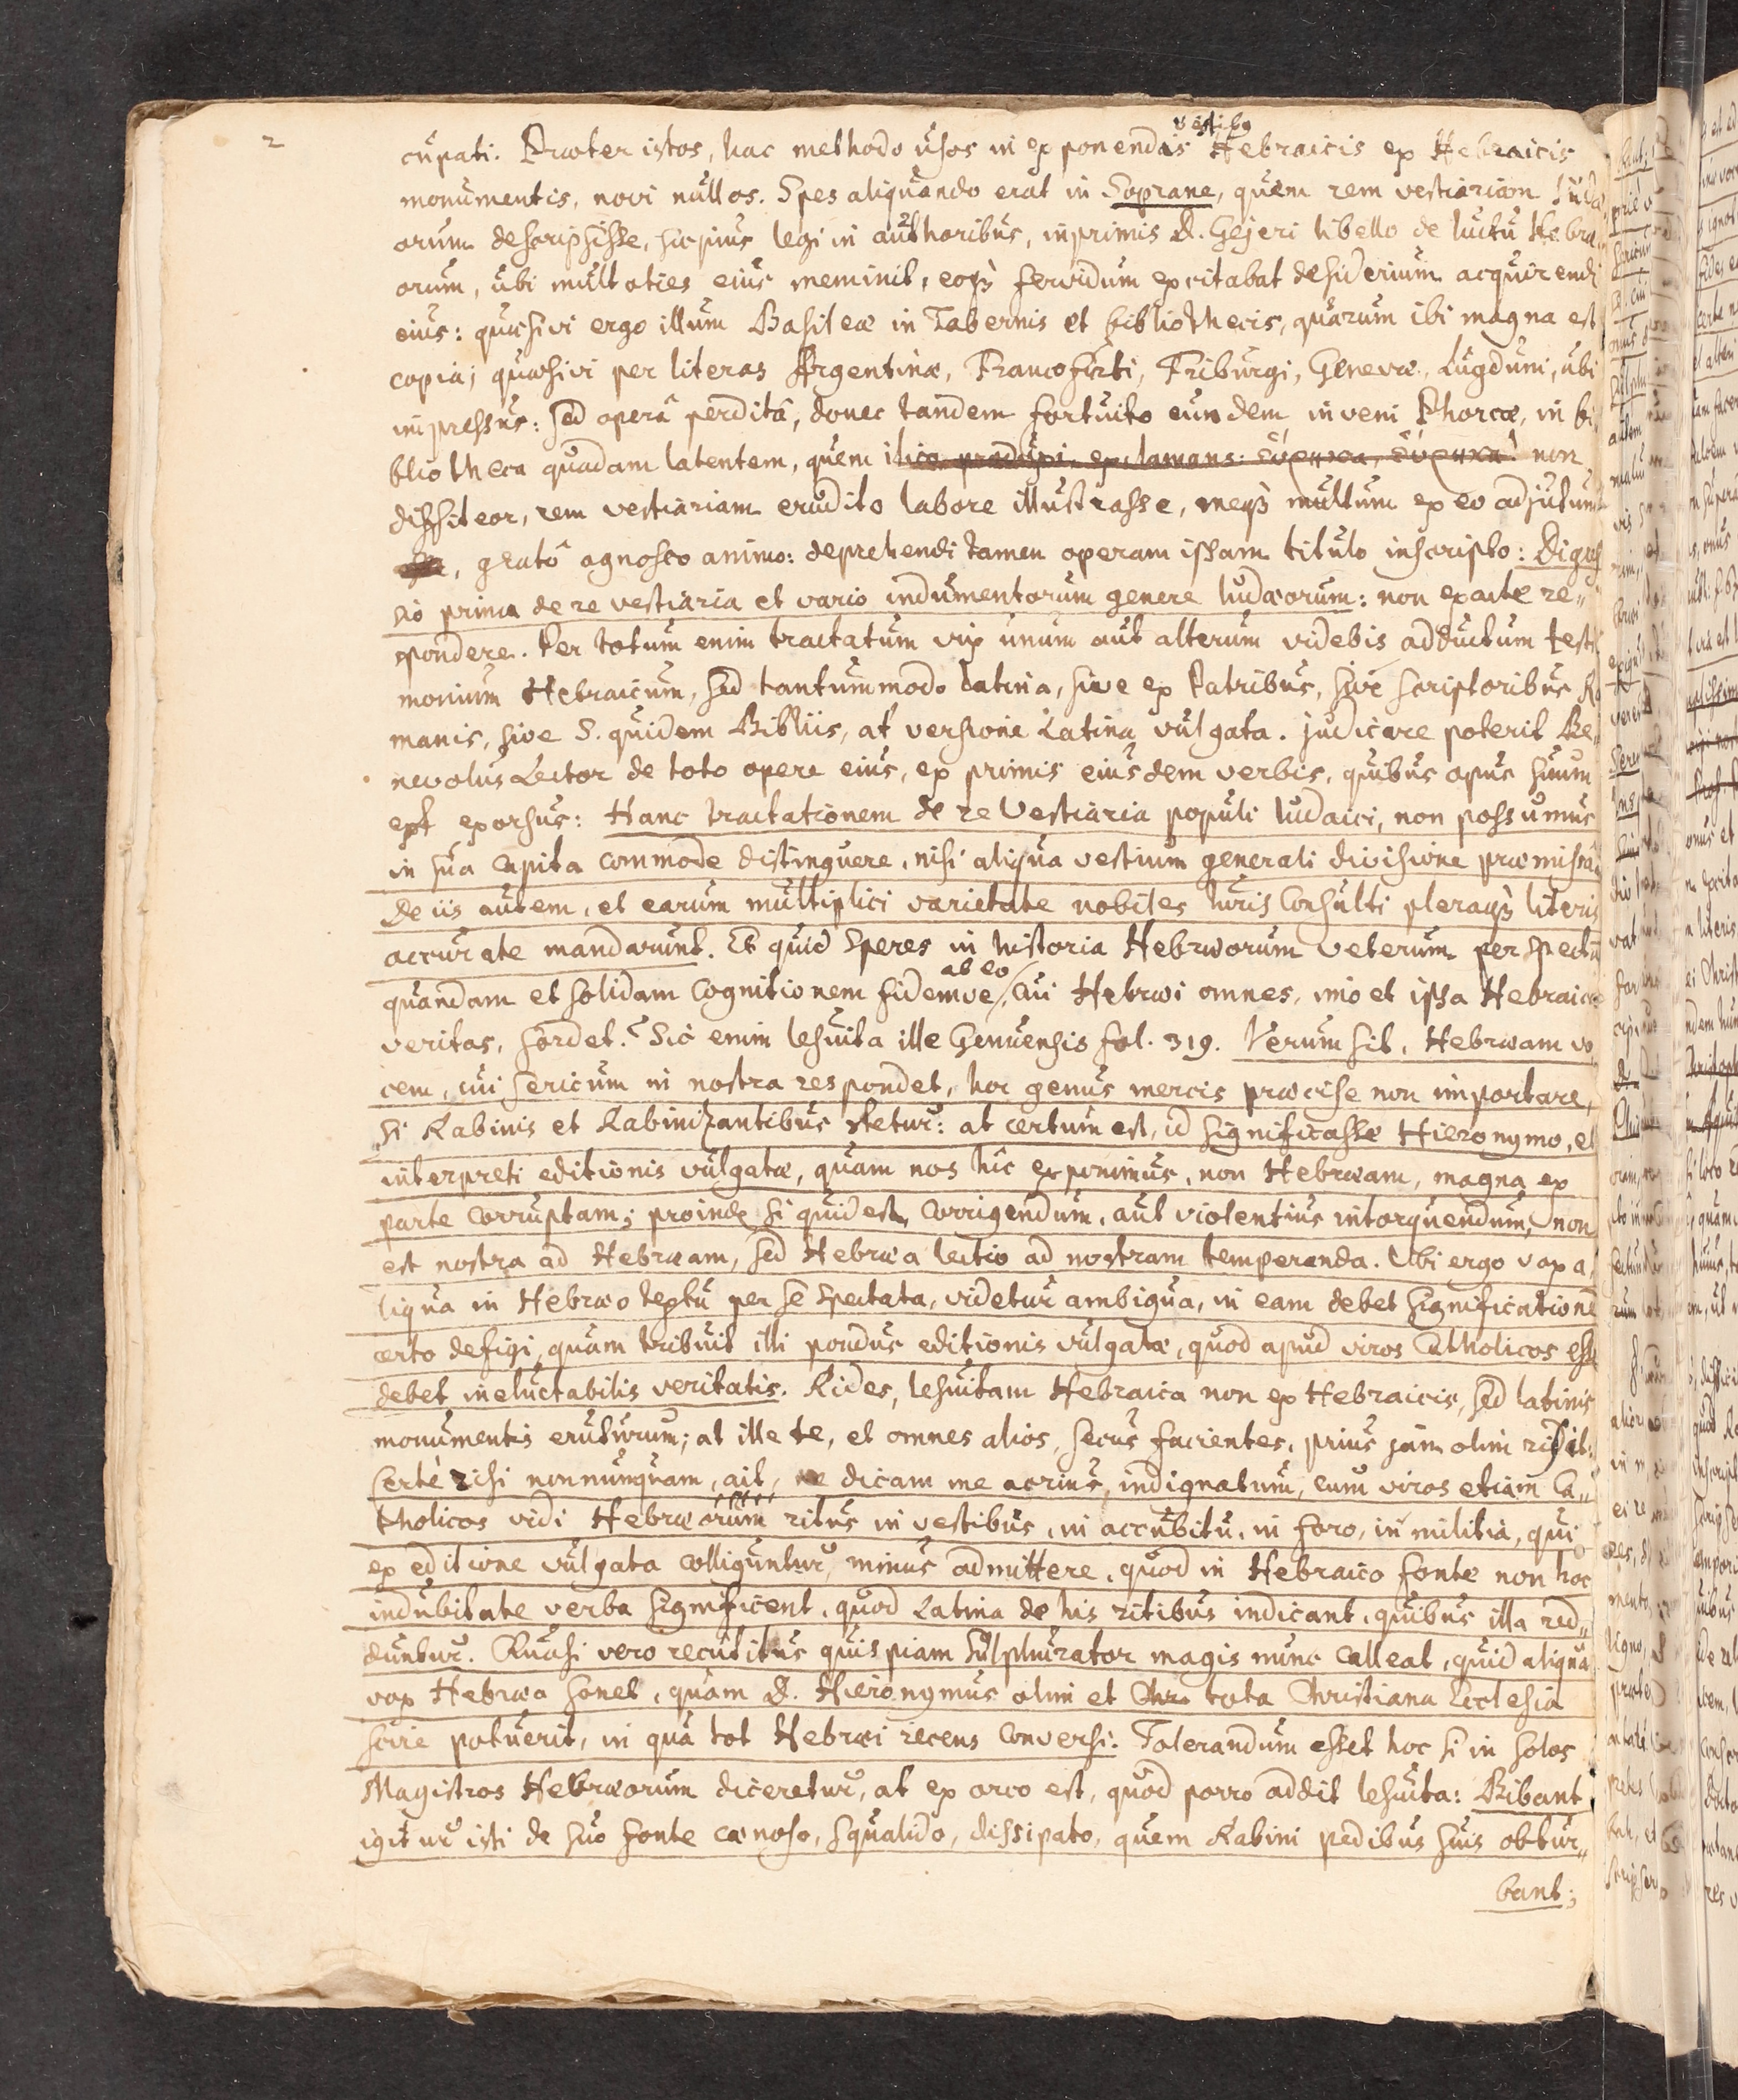 2
vestibus
cupati. Præter istos, hac methodo usos in exponendis Hebraicis ex Hebraicis
monumentis, novi nullos. Spes aliquando erat in Soprane, quem rem vestiariam Judæ
orum descripsisse, sæpius legi in authoribus, inprimis D. Gejeri libello de luctu Hebræ„
orum, ubi multoties eius meminit, eoqz fervidum excitabat desiderium acquirendi
eius: quæsivi ergo illum Basileæ in Tabernis et bibliothecis, quarum ibi magna est
copia; quæsivi per literas Argentinæ, Francofurti, Friburgi, Genevæ, Lugduni, ubi
impressus: sed operâ perditâ, donec tandem fortuito eundem inveni Phorcæ, in bi
bliotheca quadam latentem, quem ilico exclamans: εὕρηκα, εὕρηκα! non
diffiteor, rem vestiariam erudito labore illustrasse, meqz multum ex eo adjutum
, gratô agnosco animo: deprehendi tamen operam ipsam titulo inscripto: Digres
sio prima de re vestiaria et vario indumentorum genere Iudæorum: non exacte re„
spondere. Per totum enim tractatum vix unum aut alterum videbis adductum testi
monium Hebraicum, sed tantummodo Latina, sive ex Patribus, sive scriptoribus Ro
manis, sive S. quidem Bibliis, at versione Latina vulgata. judicare poterit Be„
nevolus Lector de toto opere eius, ex primis eiusdem verbis, quibus opus suum
est exorsus: Hanc tractationem de re Vestiaria populi Iudaici, non possumus
in sua capita commode distinguere, nisi aliqua vestium generali divisione præmissâ,
De iis autem, et earum multiplici varietate nobiles Iuris Consulti pleraqz literis
accurate mandarunt. Et quid speres in historia Hebræorum veterum perspectã
ab eo
quandam et solidam cognitionem fidemve, cui Hebræi omnes, imo et ipsa Hebraica
veritas, sordet? Sic enim Iesuita ille Genuensis fol. 319. Verum sit, Hebræam vo
cem, cui sericum in nostra respondet, hoc genus mercis præcise non importare,
si Rabinis et Rabinizantibus stetur: at certum est, id significasse Hieronymo, et
interpreti editionis vulgatæ, quam nos hîc exponimus, non Hebræam, magna ex
parte corruptam; proinde si quid est corrigendum, aut violentius intorquendum, non
est nostra ad Hebræam, sed Hebræa lectio ad nostram temperanda. Ubi ergo vox a„
liqua in Hebræo textu per se spectata, videtur ambigua, in eam debet significationẽ
certo defigi, quam tribuit illi pondus editionis vulgatæ, quod apud viros Catholicos esse
debet ineluctabilis veritatis. Rides, Iesuitam Hebraica non ex Hebraicis, sed latinis
monumentis eruturum; at ille te, et omnes alios, secus facientes, prius jam olim risit:
Certè risi nonnunquam, ait, ne dicam me acrius, indignatum, cum viros etiam Ca„
tholicos vidi Hebræorum ritus in vestibus, in accubitu, in foro, in militia, qui
ex editione vulgata colliguntur, minus admittere, quod in Hebraico fonte non hoc
indubitate verba significent, quod Latina de his ritibus indicant, quibus illa red„
duntur. Quasi vero recutitus quispiam sulphurator magis nunc calleat, quid aliqua
vox Hebræa sonet, quam D. Hieronymus olim et tota Christiana Ecclesia
scire potuerit, in qua tot Hebræi recens conversi. Tolerandum esset hoc si in solos
Magistros Hebræorum diceretur, at ex orco est, quod porro addit Iesuita: Bibant
igitur isti de suo fonte cænoso, squalido, dissipato, quem Rabini pedibus suis obtur„
bant;